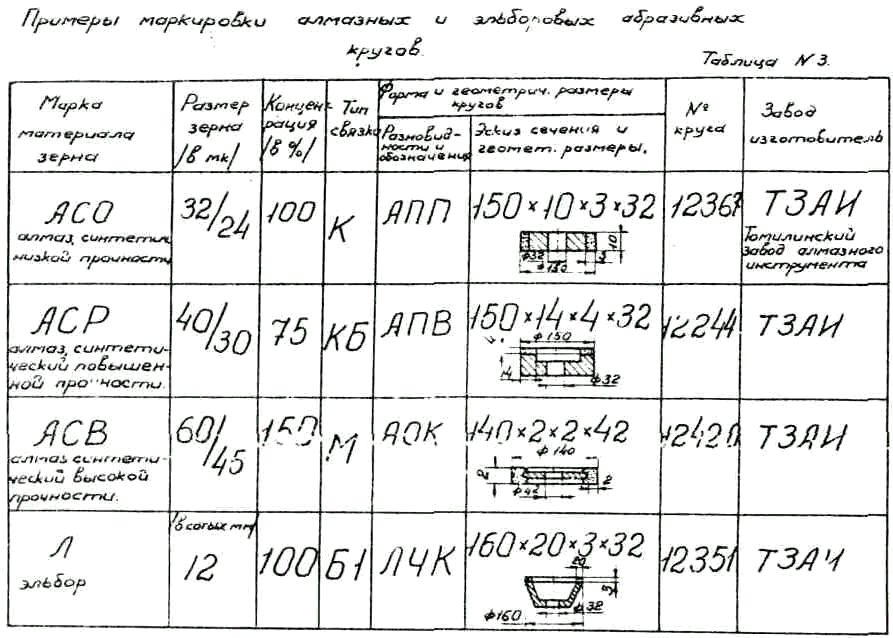 Примеры маркировки алмазных и эльборовых абразивных
кругов.
Таблица N 3.
Марка
материала
зерна
Размер
зерна
/в мк/
Концен-
рация
/в %/
Тип
связки
Форма и геометрич. размеры
кругов
Разновид-
ности и
обозначения
Эскиз сечения и
геомет. размеры.
№
круга
Завод
изготовитель
АСО
алмаз, синтетич.
низкой прочности
32/24
100
К
АПП
150×10×3×32
ф32
ф150
3
10
12367
ТЗАИ
Томилинский
завод алмазного
инструмента
АСР
алмаз, синтети-
ческий повышен-
ной прочности.
40/30
75
КБ
АПВ
150×14×4×32
ф150
ф32
12244
ТЗАИ
АСВ
алмаз синтети-
ческий высокой
прочности.
60/45
150
М
АОК
140×2×2×42
ф140
2
ф42
2
ТЗАИ
Л
эльбор
/в сотых мм/
12
100
Б1
ЛЧК
160×20×3×32
20
3
ф160
12351